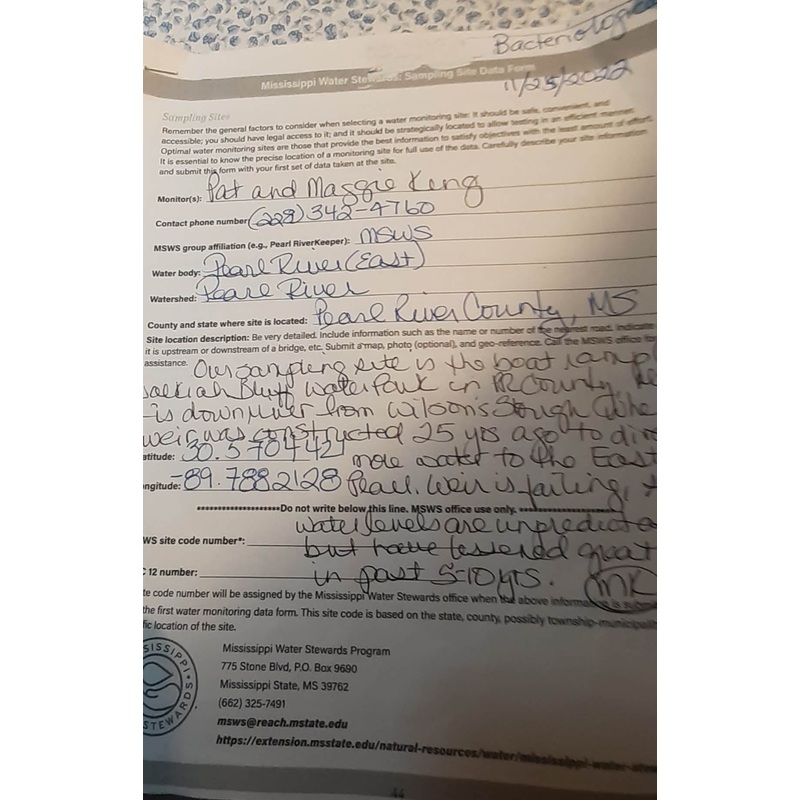 Bacteriolog
Mississippi Water Stewards: Sampling Site Data Form
11/25/2022
Sampling Sites
Remember the general factors to consider when selecting a water monitoring site: it should be safe, convenient, and
accessible; you should have legal access to it; and it should be strategically located to allow testing in an efficient manner.
Optimal water monitoring sites are those that provide the best information to satisfy objectives with the least amount of effort.
It is essential to know the precise location of a monitoring site for full use of the data. Carefully describe your site information
and submit this form with your first set of data taken at the site.
Monitor(s): Pat and Maggie King
Contact phone number (228) 342-4760
MSWS group affiliation (e.g., Pearl RiverKeeper): MSWS
Water body: Pearl River (East)
Watershed: Pearl River
County and state where site is located: Pearl River County, MS
Site location description: Be very detailed. Include information such as the name or number of the nearest road. Indicate
it is upstream or downstream of a bridge, etc. Submit a map, photo (optional), and geo-reference. Call the MSWS office for
assistance. Our sampling site is the boat ramp
Bluff Water Park in PR County
is down river from Wilson's Slough
weir was constructed 25 yrs ago to
atitude: 30.570442 more water to the East
ngitude: -89.7882128 Pearl. Weir is failing,
Do not write below this line. MSWS office use only.
water levels are
WS site code number*: but have lessened great
12 number: in past 5-10 yrs. MK
te code number will be assigned by the Mississippi Water Stewards office when the above information is
the first water monitoring data form. This site code is based on the state, county, possibly township-municipalit
fic location of the site.
Mississippi Water Stewards Program
775 Stone Blvd, P.O. Box 9690
Mississippi State, MS 39762
(662) 325-7491
msws@reach.msstate.edu
https://extension.msstate.edu/natural-resources/water/mississippi-water-stew
SISSIPPI
STEWARDS
44